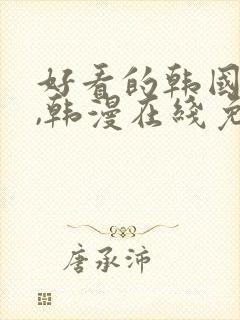 好看的韩国
,韩漫在线免
唐承沛